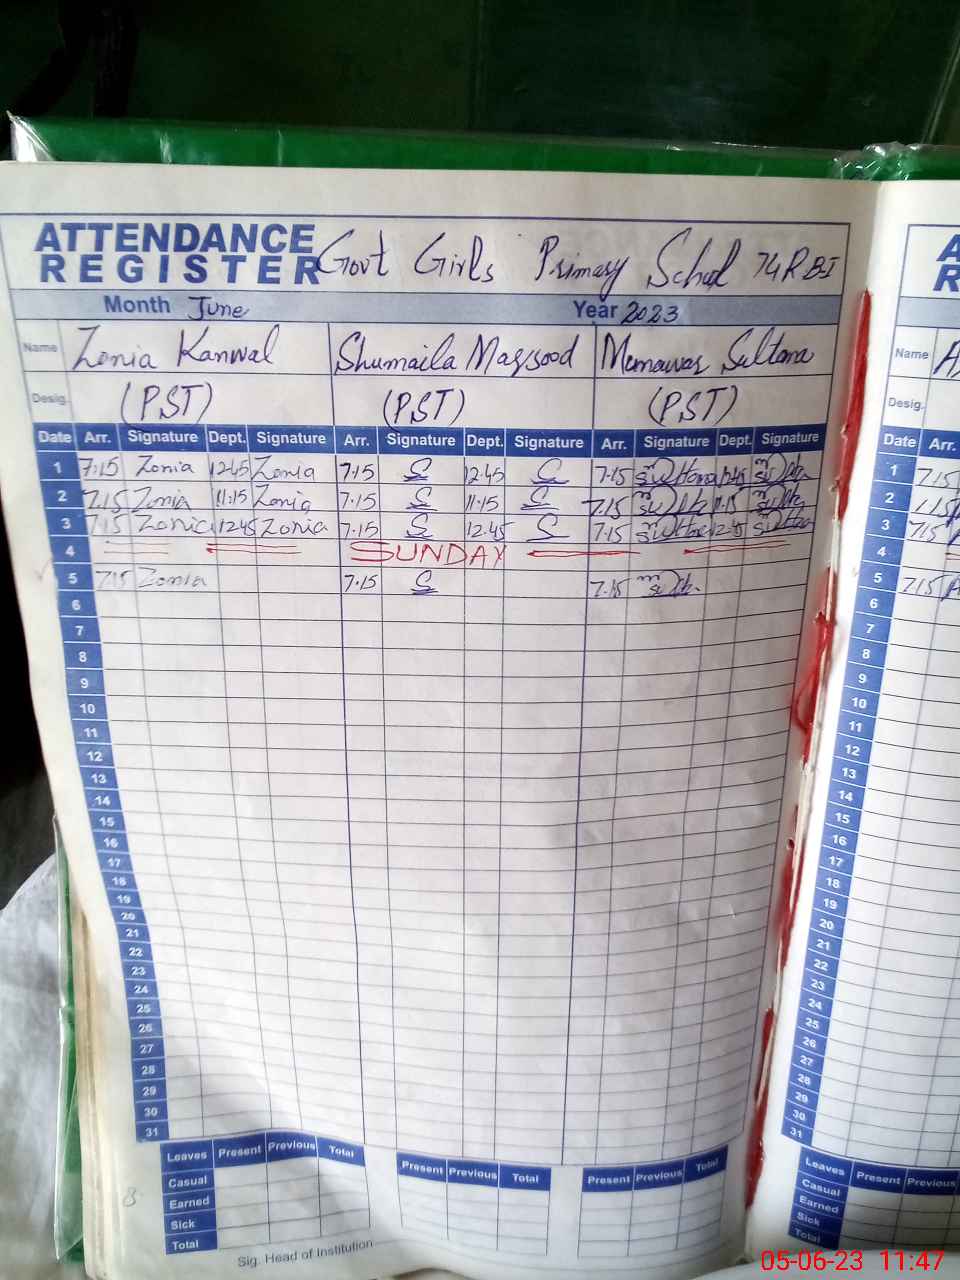 ATTENDANCE
REGISTER Govt Girls Primary School 74RBI
Month June Year 2023
Name Zonia Kanwal Shumaila Maqsood Munawar Sultana Name
Desig. (PST) (PST) (PST) Desig.
Date Arr. Signature Dept. Signature Arr. Signature Dept. Signature Arr. Signature Dept. Signature Date Arr.
1 7:15 Zonia 12:45 Zonia 7.15 S 12.45 S 7.15 Sultana 12:45 1 7.15
2 7.15 Zonia 11:15 Zonia 7.15 S 11:15 S 7.15 11.15 2
3 7:15 Zonia 12:45 Zonia 7.15 S 12.45 S 7.15 Sultana 12:45 Sultana 3 7.15
4 SUNDAY 4
5 7.15 Zonia 7.15 S 7.15 5 7.15
6 6
7 7
8 8
9 9
10 10
11 11
12 12
13 13
14 14
15 15
16 16
17 17
18 18
19 19
20 20
21 21
22 22
23 23
24 24
25 25
26 26
27 27
28 28
29 29
30 30
31 31
Leaves Present Previous Total Present Previous Total Present Previous Total Leaves Present Previous
Casual Casual
Earned Earned
Sick Sick
Total Total
Sig. Head of Institution
05-06-23 11:47